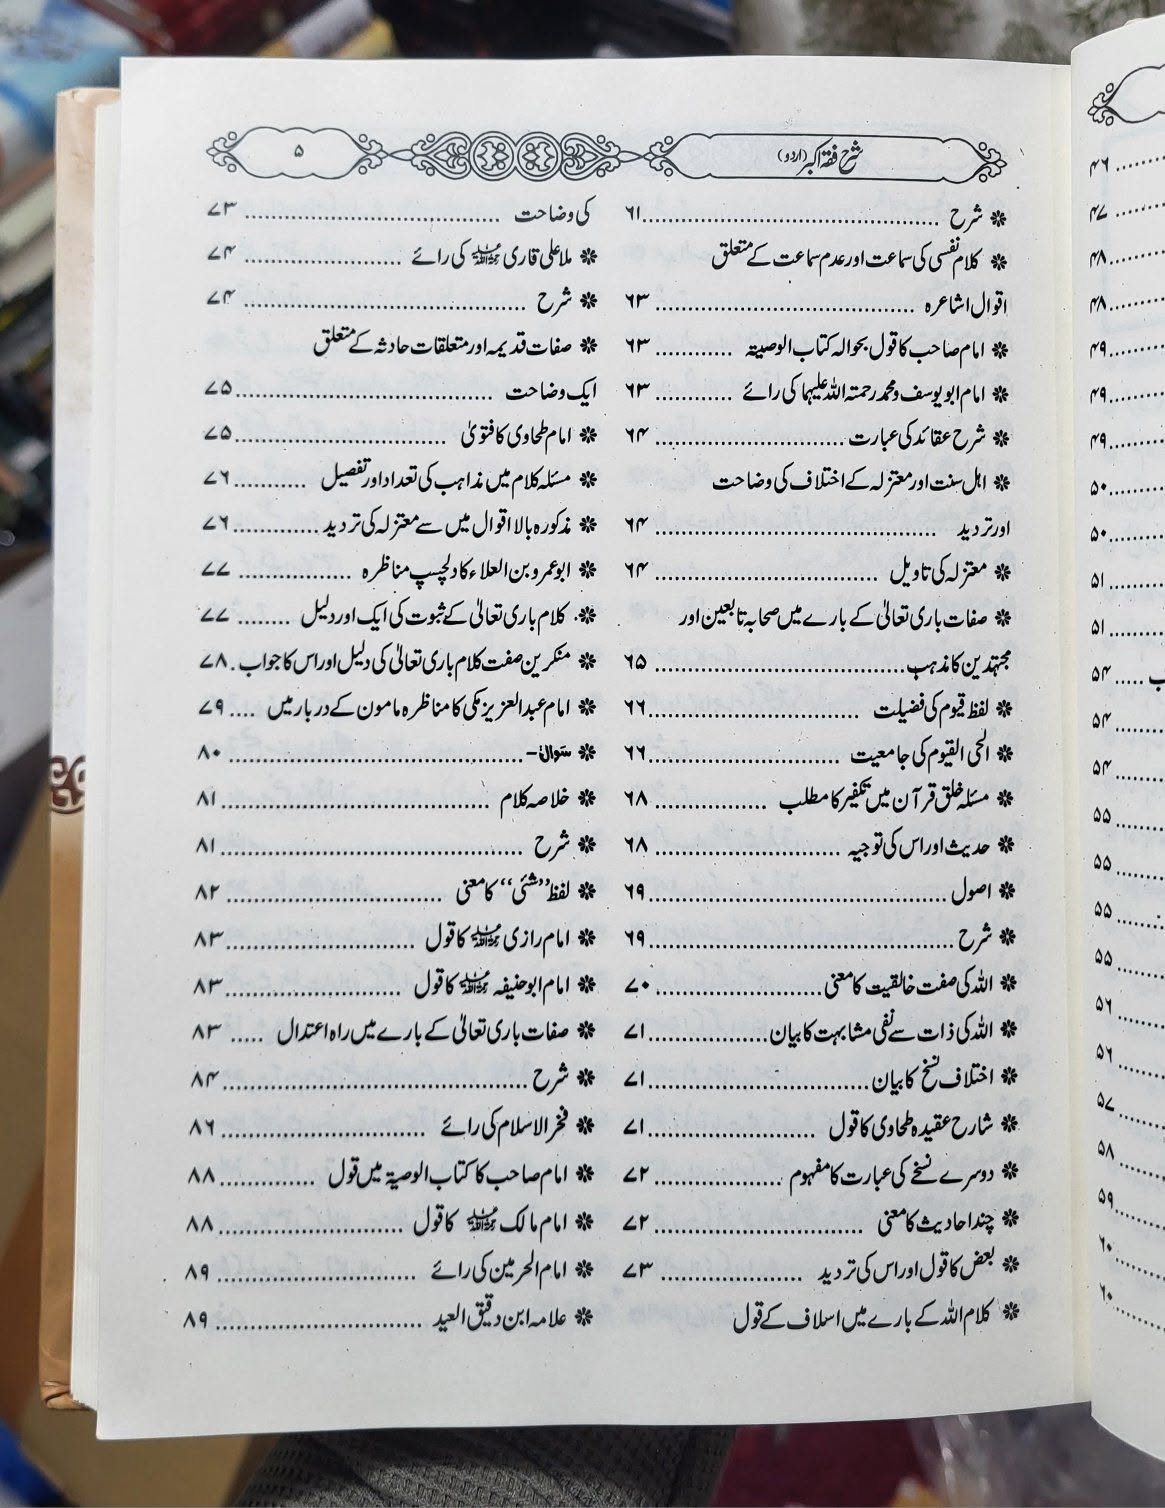 شرح فقہ اکبر (اردو)
۵
❊ شرح ........ ۶۱
❊ کلام نفسی کی سماعت اور عدم سماعت کے متعلق
اقوال اشاعرہ ........ ۶۳
❊ امام صاحب کا قول بحوالہ کتاب الوصیۃ ........ ۶۳
❊ امام ابو یوسف و محمد رحمتہ اللہ علیہما کی رائے ........ ۶۳
❊ شرح عقائد کی عبارت ........ ۶۴
❊ اہل سنت اور معتزلہ کے اختلاف کی وضاحت
اور تردید ........ ۶۴
❊ معتزلہ کی تاویل ........ ۶۴
❊ صفات باری تعالیٰ کے بارے میں صحابہ تابعین اور
مجتہدین کا مذہب ........ ۶۵
❊ لفظ قیوم کی فضیلت ........ ۶۶
❊ الحی القیوم کی جامعیت ........ ۶۶
❊ مسئلہ خلق قرآن میں تکفیر کا مطلب ........ ۶۸
❊ حدیث اور اس کی توجیہ ........ ۶۸
❊ اصول ........ ۶۹
❊ شرح ........ ۶۹
❊ اللہ کی صفت خالقیت کا معنی ........ ۷۰
❊ اللہ کی ذات سے نفی مشابہت کا بیان ........ ۷۱
❊ اختلاف نسخ کا بیان ........ ۷۱
❊ شارح عقیدہ طحاوی کا قول ........ ۷۱
❊ دوسرے نسخے کی عبارت کا مفہوم ........ ۷۲
❊ چند احادیث کا معنی ........ ۷۲
❊ بعض کا قول اور اس کی تردید ........ ۷۳
❊ کلام اللہ کے بارے میں اسلاف کے قول
کی وضاحت ........ ۷۳
❊ ملا علی قاری رحمۃ اللہ علیہ کی رائے ........ ۷۴
❊ شرح ........ ۷۴
❊ صفات قدیمہ اور متعلقات حادثہ کے متعلق
ایک وضاحت ........ ۷۵
❊ امام طحاوی کا فتویٰ ........ ۷۵
❊ مسئلہ کلام میں مذاہب کی تعداد اور تفصیل ........ ۷۶
❊ مذکورہ بالا اقوال میں سے معتزلہ کی تردید ........ ۷۶
❊ ابو عمرو بن العلاء کا دلچسپ مناظرہ ........ ۷۷
❊ کلام باری تعالیٰ کے ثبوت کی ایک اور دلیل ........ ۷۷
❊ منکرین صفت کلام باری تعالیٰ کی دلیل اور اس کا جواب . ۷۸
❊ امام عبد العزیز مکی کا مناظرہ مامون کے دربار میں .... ۷۹
❊ سوال:- ........ ۸۰
❊ خلاصہ کلام ........ ۸۱
❊ شرح ........ ۸۱
❊ لفظ "شئی" کا معنی ........ ۸۲
❊ امام رازی رحمۃ اللہ علیہ کا قول ........ ۸۳
❊ امام ابو حنیفہ رحمۃ اللہ علیہ کا قول ........ ۸۳
❊ صفات باری تعالیٰ کے بارے میں راہ اعتدال ..... ۸۳
❊ شرح ........ ۸۴
❊ فخر الاسلام کی رائے ........ ۸۶
❊ امام صاحب کا کتاب الوصیۃ میں قول ........ ۸۸
❊ امام مالک رحمۃ اللہ علیہ کا قول ........ ۸۸
❊ امام الحرمین کی رائے ........ ۸۹
❊ علامہ ابن دقیق العید ........ ۸۹
۴۶
۴۷
۴۸
۴۸
۴۹
۴۹
۴۹
۵۰
۵۰
۵۱
۵۱
۵۴
۵۴
۵۴
۵۵
۵۵
۵۵
۵۵
۵۶
۵۶
۵۷
۵۸
۵۹
۶۰
۶۰